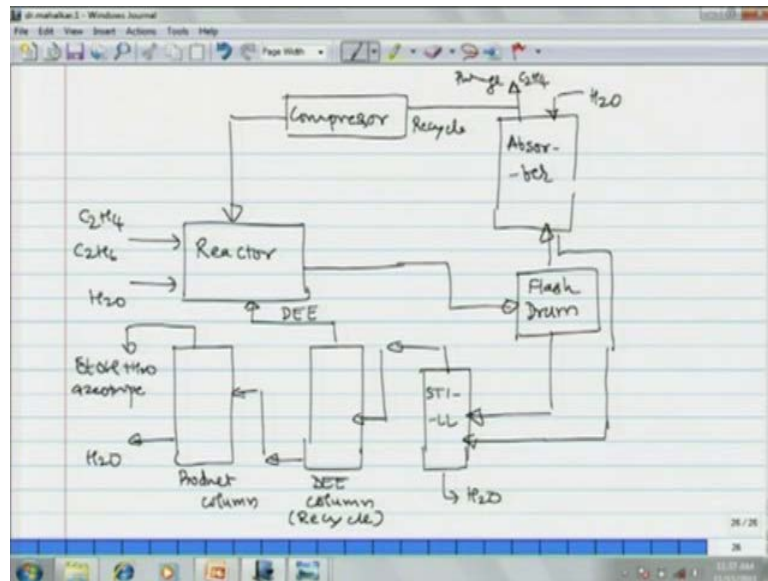 dr.mahalkar.1 - Windows Journal
File Edit View Insert Actions Tools Help
Page Width
Purge C2H4
H2O
Compressor
Recycle
Absor-
-ber
C2H4
C2H6
H2O
Reactor
Flash
Drum
DEE
EtOH + H2O
azeotrope
H2O
STI-
-LL
H2O
Product
column
DEE
column
(Recycle)
26 / 26
26